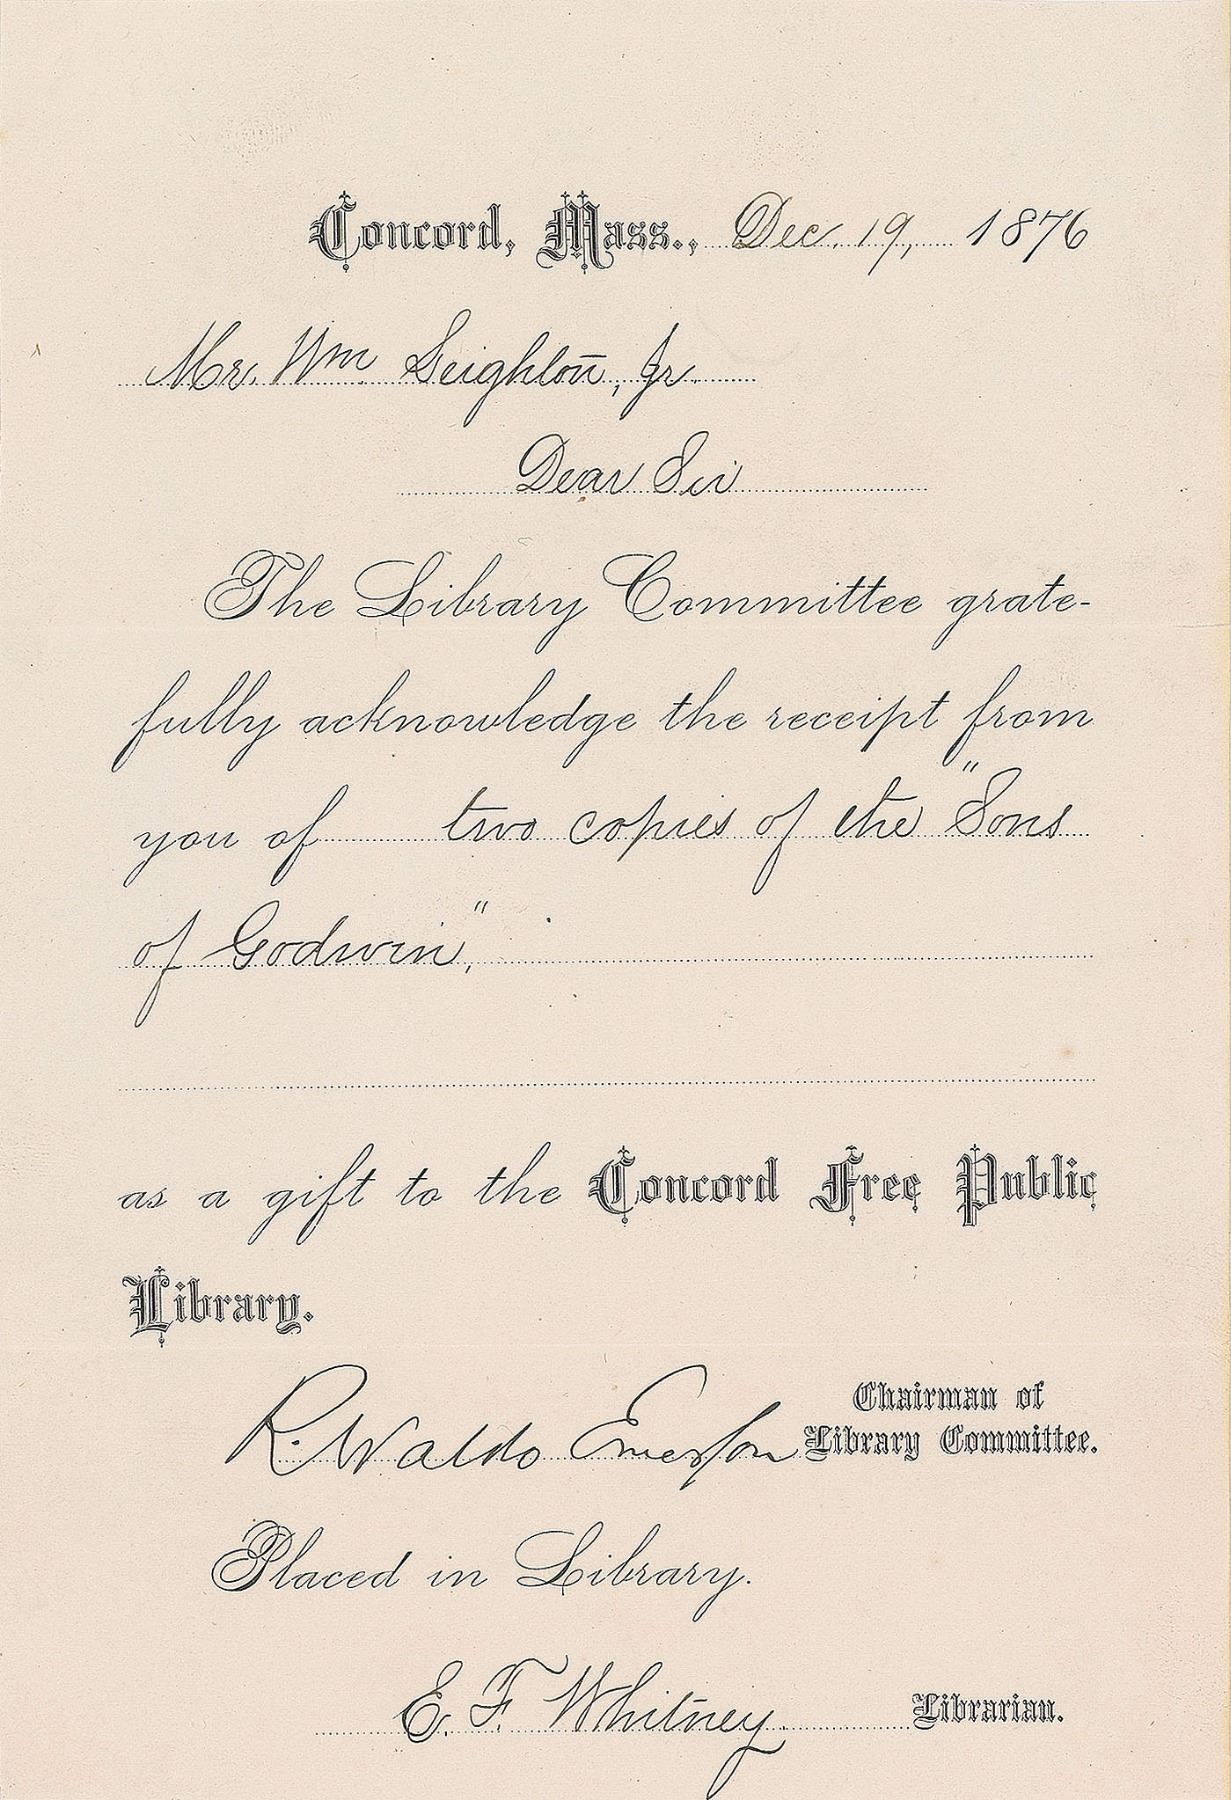 Concord, Mass., Dec. 19, 1876
Mr. Wm Leighton, Jr.
Dear Sir
The Library Committee grate-
fully acknowledge the receipt from
you of two copies of the "Sons
of Godwin,"
as a gift to the Concord Free Public
Library.
R. Waldo Emerson Chairman of
Library Committee.
Placed in Library.
E. F. Whitney Librarian.